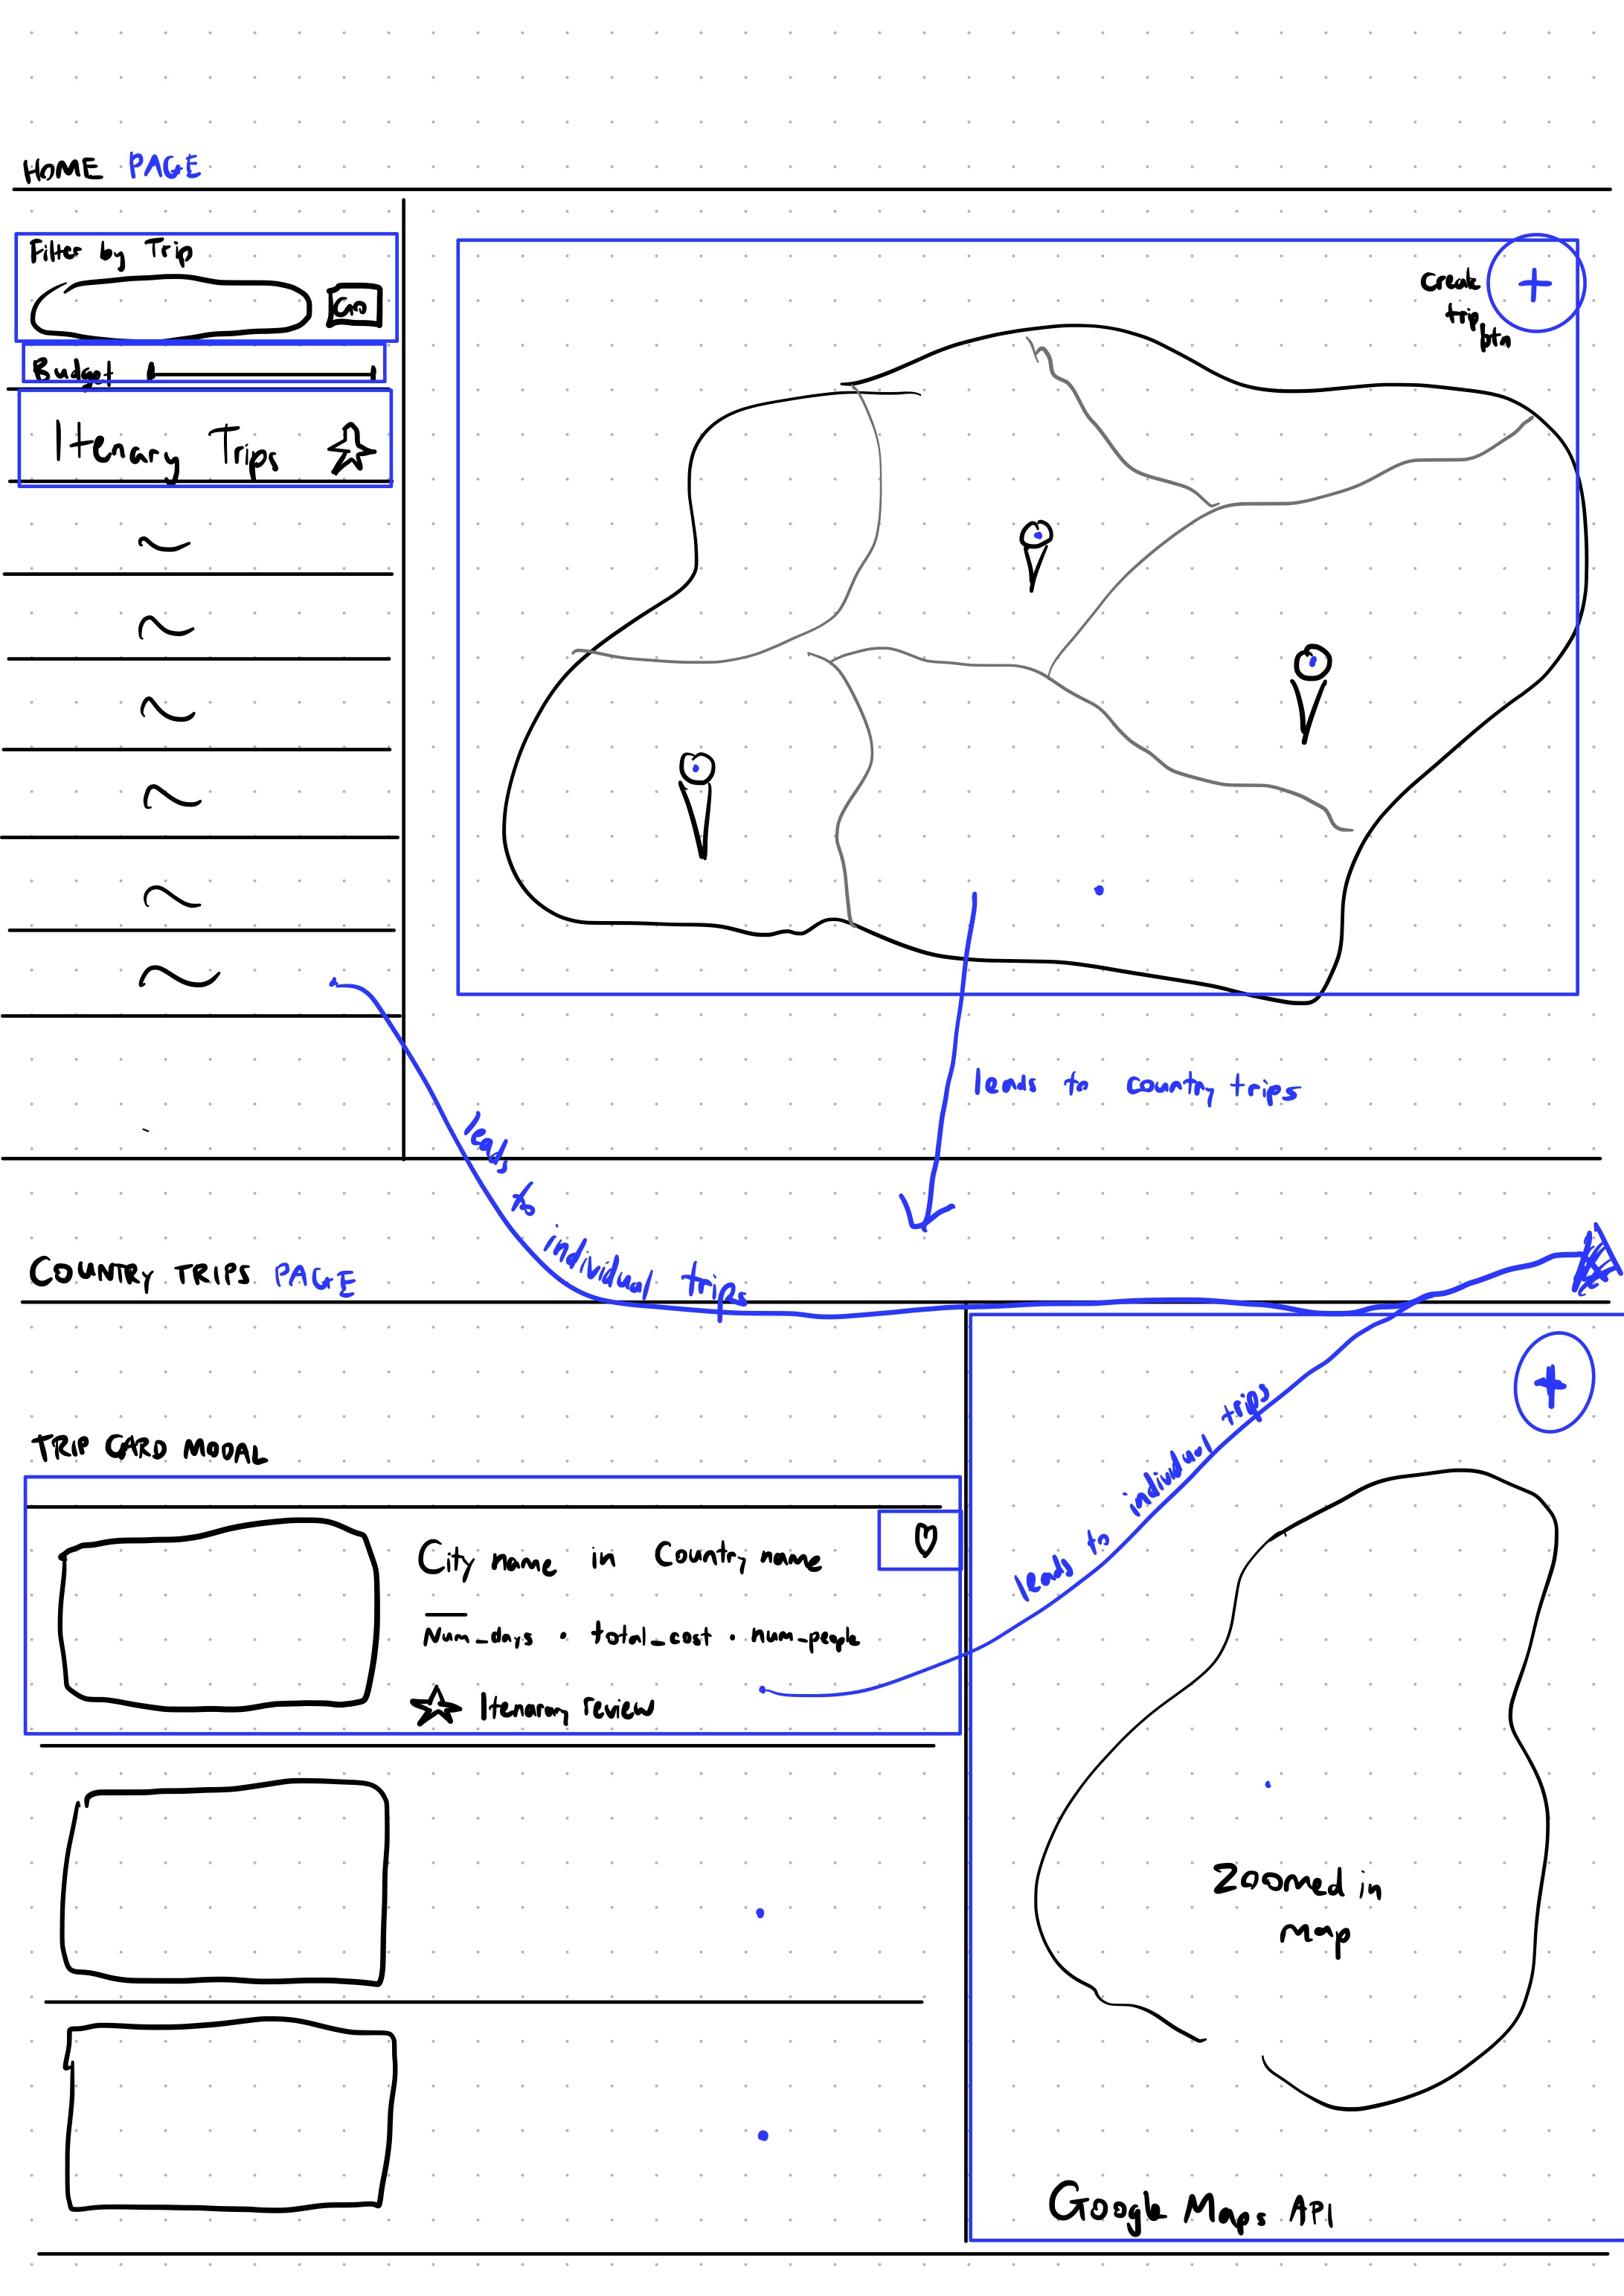 HOME PAGE
Filter by Trip
Go
Budget
Itenary Trips
Create
trip
btn
+
leads to country trips
leads to individual trips
COUNTRY TRIPS PAGE
+
TRIP CARD MODAL
City name in Country name
Num_days · total_cost · num_people
Itenary review
leads to individual trips
Zoomed in
map
Google Maps API